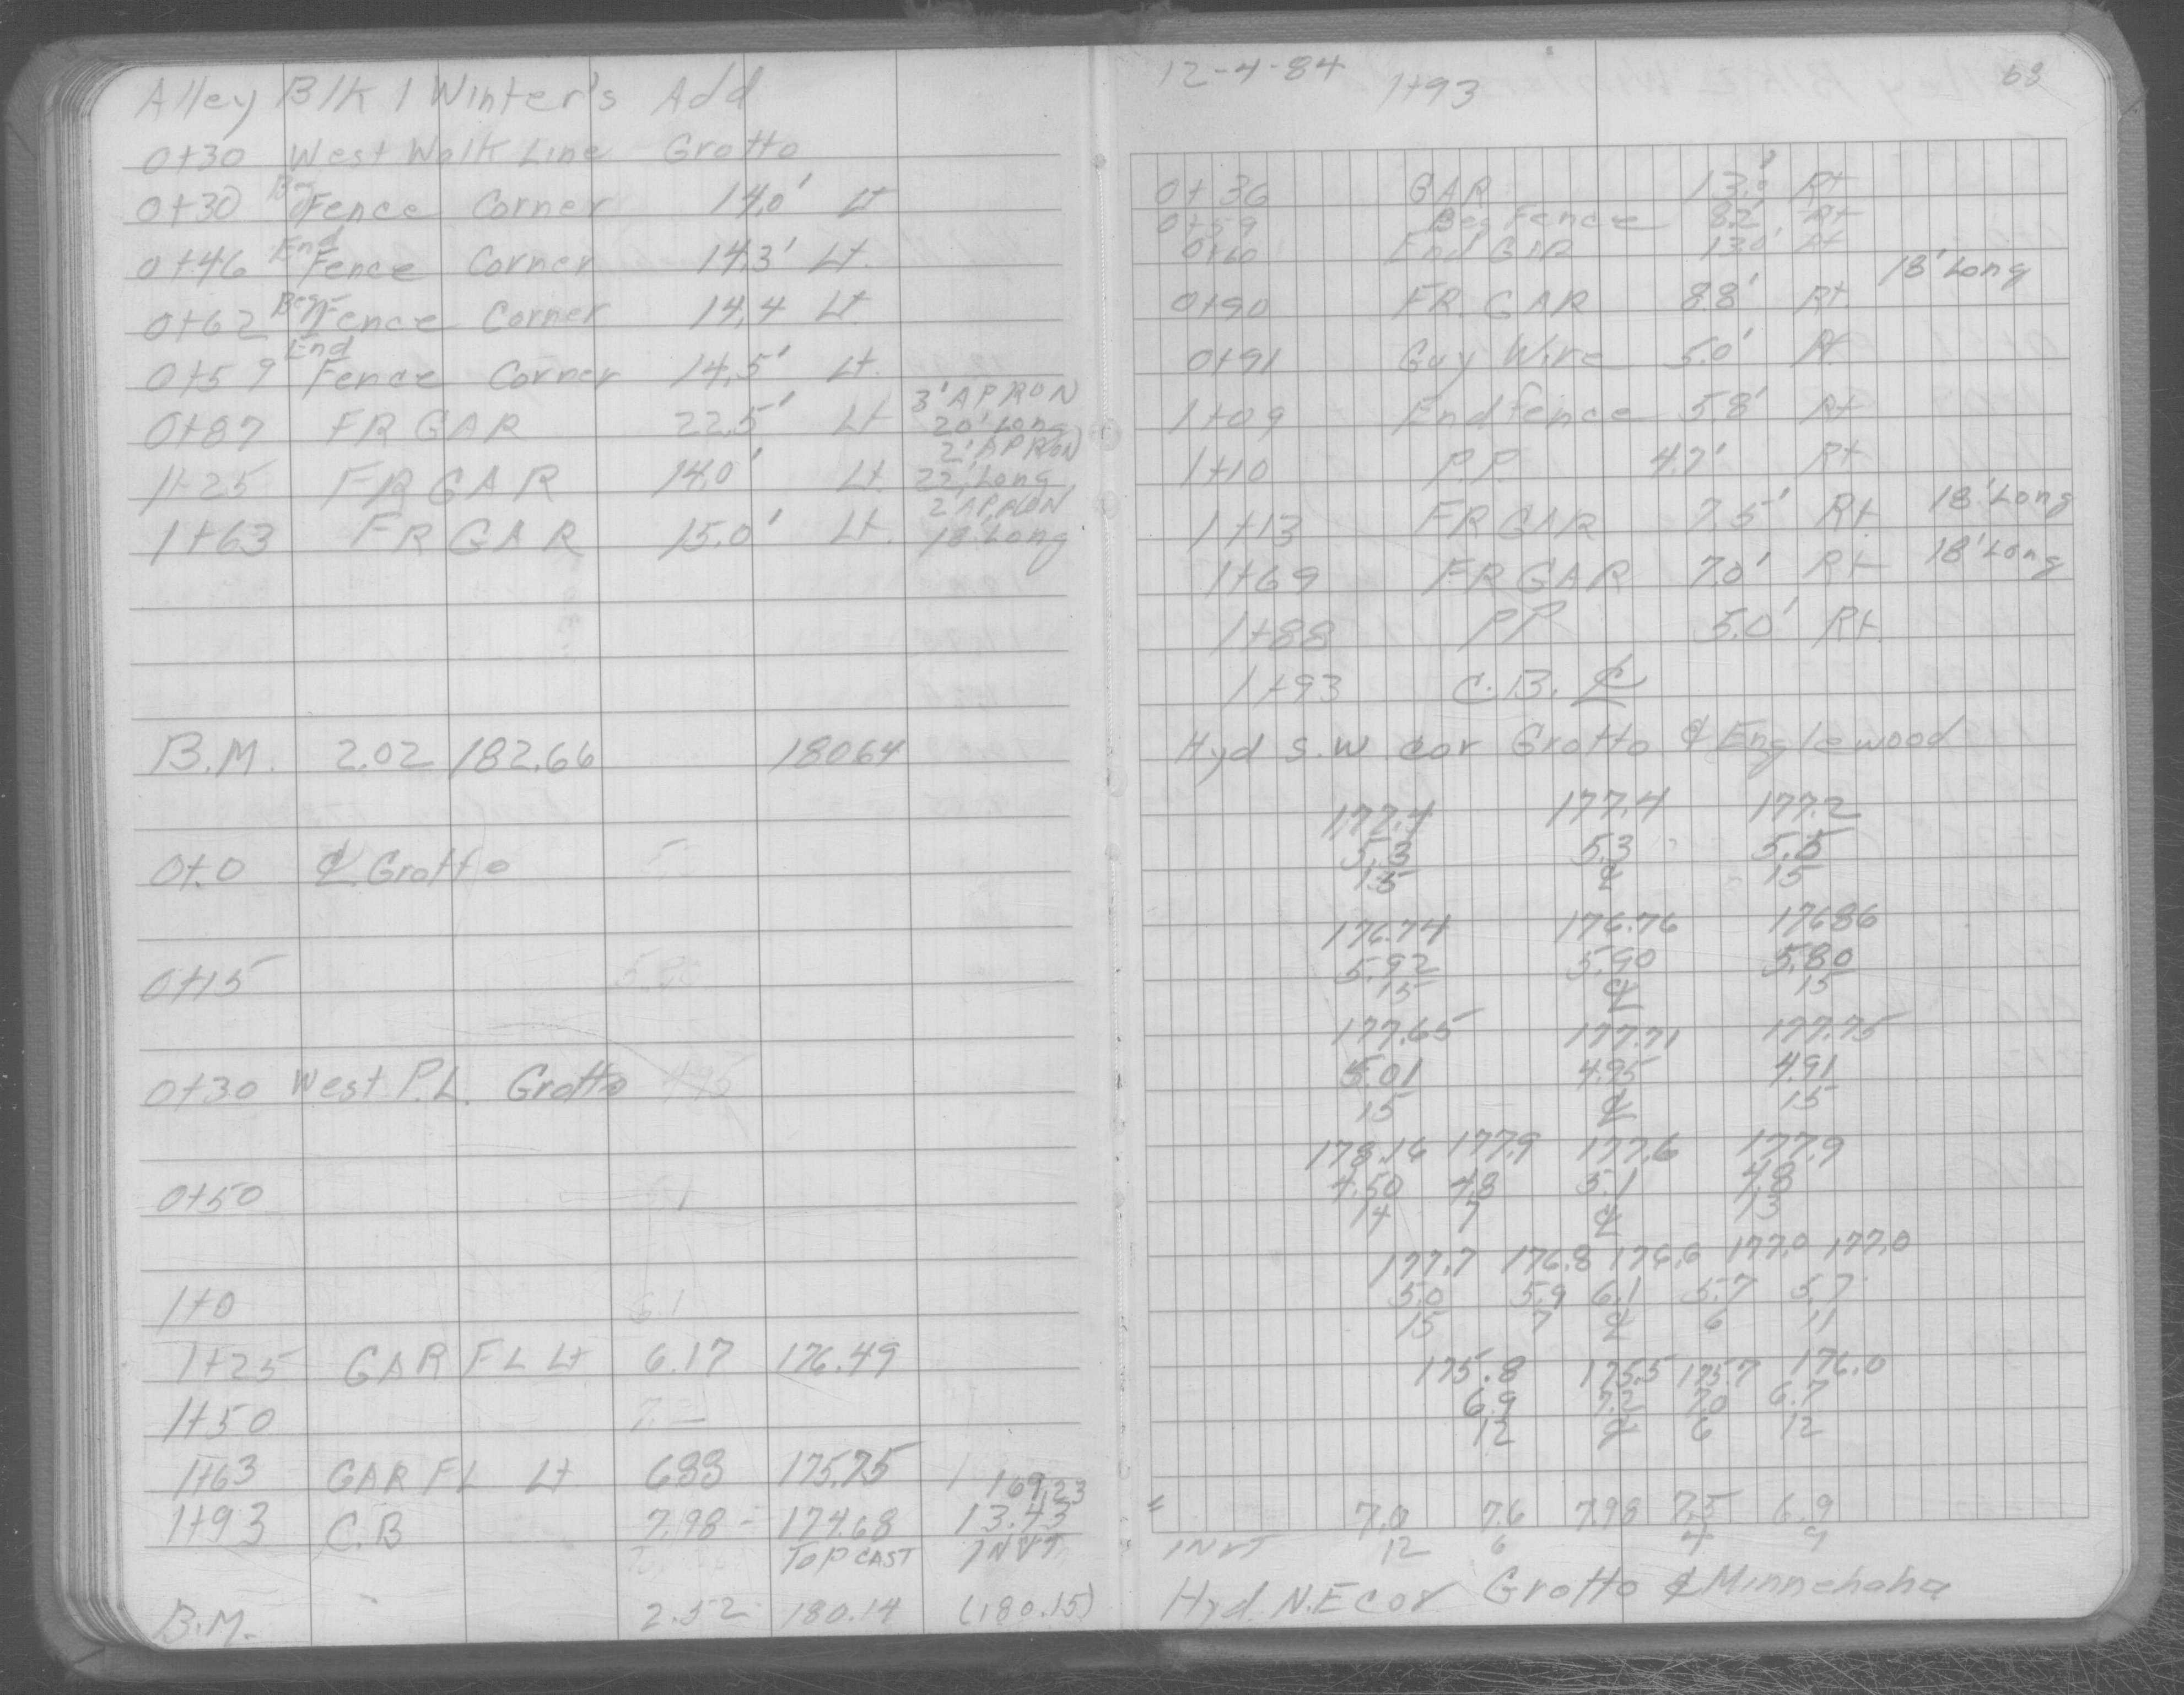 Alley Blk 1 Winter's Add
0+30 West Walk Line Grotto
0+30 Beg Fence Corner 14.0' Lt
0+46 End Fence Corner 14.3' Lt.
0+62 Beg Fence Corner 14.4 Lt.
0+59 End Fence Corner 14.5' Lt.
0+87 FR GAR 22.5' Lt 3' APRON 20' Long
1+25 FR GAR 14.0' Lt. 2' APRON 22' Long
1+63 FR GAR 15.0' Lt. 2' APRON 18' Long
B.M. 2.02 182.66 180.64
0+0 ℄ Grotto
0+15
0+30 West P.L. Grotto
0+50
1+0
1+25 GAR FL Lt 6.17 176.49
1+50
1+63 GAR FL Lt 6.88 175.75
169.23
1+93 C.B 7.98 - 174.68 13.43
TOP CAST INVT
B.M. 2.52 180.14 (180.15)
12-4-84 1+93 63
0+36 GAR 13.0' Rt
0+59 Beg Fence 8.2' Rt
0+60 End GAR 13.0' Rt
18' Long
0+90 FR. GAR 8.8' Rt.
0+91 Guy Wire 5.0' Rt.
1+09 End fence 5.8' Rt
1+10 P.P. 4.7' Rt
1+13 FR GAR 7.5' Rt. 18' Long
1+69 FR GAR 7.0' Rt 18' Long
1+88 PP 5.0' Rt.
1+93 C.B. ℄
Hyd S.W cor Grotto & Englewood
177.4 177.4 177.2
5.3 5.3 5.5
15 ℄ 15
176.74 176.76 176.86
5.92 5.90 5.80
15 ℄ 15
177.65 177.71 177.75
5.01 4.95 4.91
15 ℄ 15
178.16 177.9 177.6 177.9
4.50 4.8 5.1 4.8
14 7 ℄ 13
177.7 176.8 176.6 177.0 177.0
5.0 5.9 6.1 5.7 5.7
15 7 ℄ 6 11
175.8 175.5 175.7 176.0
6.9 7.2 7.0 6.7
12 ℄ 6 12
7.0 7.6 7.98 7.5 6.9
INVT 12 6 4 9
Hyd. N.E cor Grotto & Minnehaha